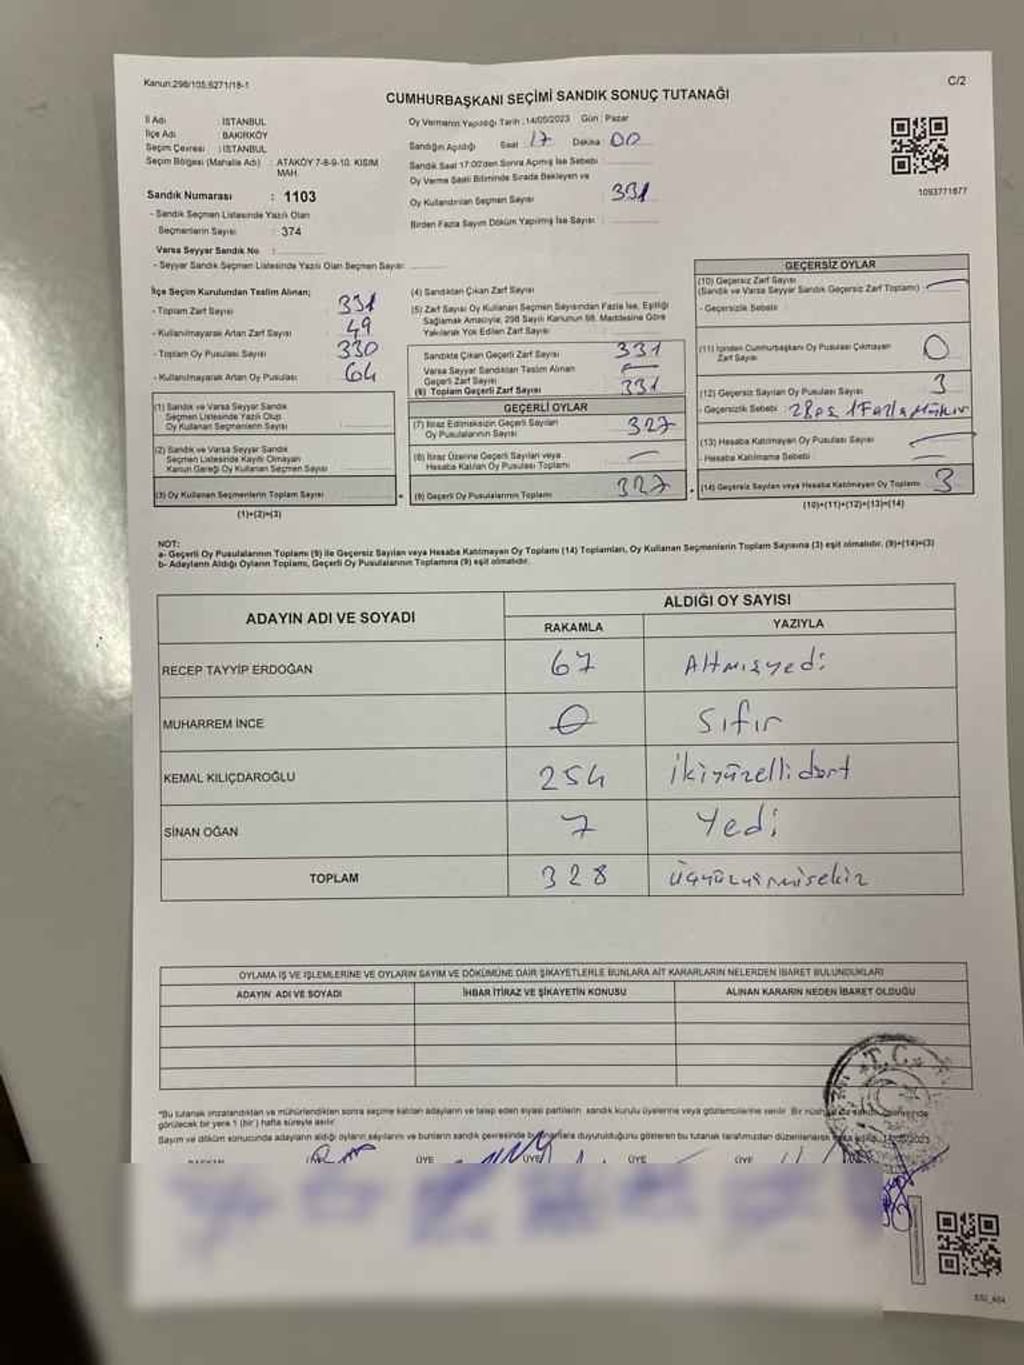 Kanun:298/105,6271/18-1
C/2
CUMHURBAŞKANI SEÇİMİ SANDIK SONUÇ TUTANAĞI
İl Adı : İSTANBUL
İlçe Adı : BAKIRKÖY
Seçim Çevresi : İSTANBUL
Seçim Bölgesi (Mahalle Adı) : ATAKÖY 7-8-9-10. KISIM MAH.
Sandık Numarası : 1103
- Sandık Seçmen Listesinde Yazılı Olan
Seçmenlerin Sayısı : 374
Varsa Seyyar Sandık No :
- Seyyar Sandık Seçmen Listesinde Yazılı Olan Seçmen Sayısı:
Oy Vermenin Yapıldığı Tarih : 14/05/2023 Gün : Pazar
Sandığın Açıldığı Saat : 17 Dakika : 00
Sandık Saat 17:00'den Sonra Açılmış İse Sebebi :
Oy Verme Saati Bitiminde Sırada Bekleyen ve
Oy Kullandırılan Seçmen Sayısı : 331
Birden Fazla Sayım Döküm Yapılmış İse Sayısı :
1093771677
İlçe Seçim Kurulundan Teslim Alınan;
- Toplam Zarf Sayısı : 331
- Kullanılmayarak Artan Zarf Sayısı : 49
- Toplam Oy Pusulası Sayısı : 330
- Kullanılmayarak Artan Oy Pusulası : 64
(1) Sandık ve Varsa Seyyar Sandık
Seçmen Listesinde Yazılı Olup
Oy Kullanan Seçmenlerin Sayısı :
(2) Sandık ve Varsa Seyyar Sandık
Seçmen Listesinde Kayıtlı Olmayan
Kanun Gereği Oy Kullanan Seçmen Sayısı :
(3) Oy Kullanan Seçmenlerin Toplam Sayısı
(1)+(2)=(3)
(4) Sandıktan Çıkan Zarf Sayısı :
(5) Zarf Sayısı Oy Kullanan Seçmen Sayısından Fazla İse, Eşitliği
Sağlamak Amacıyla, 298 Sayılı Kanunun 98. Maddesine Göre
Yakılarak Yok Edilen Zarf Sayısı :
Sandıkta Çıkan Geçerli Zarf Sayısı : 331
Varsa Seyyar Sandıktan Teslim Alınan
Geçerli Zarf Sayısı :
(6) Toplam Geçerli Zarf Sayısı : 331
GEÇERLİ OYLAR
(7) İtiraz Edilmeksizin Geçerli Sayılan
Oy Pusulalarının Sayısı : 327
(8) İtiraz Üzerine Geçerli Sayılan veya
Hesaba Katılan Oy Pusulası Toplamı :
(9) Geçerli Oy Pusulalarının Toplamı : 327
GEÇERSİZ OYLAR
(10) Geçersiz Zarf Sayısı
(Sandık ve Varsa Seyyar Sandık Geçersiz Zarf Toplamı) :
- Geçersizlik Sebebi
(11) İçinden Cumhurbaşkanı Oy Pusulası Çıkmayan
Zarf Sayısı : 0
(12) Geçersiz Sayılan Oy Pusulası Sayısı : 3
- Geçersizlik Sebebi : 2 Boş 1 Fazla Mühür
(13) Hesaba Katılmayan Oy Pusulası Sayısı
- Hesaba Katılmama Sebebi
(14) Geçersiz Sayılan veya Hesaba Katılmayan Oy Toplamı : 3
(10)+(11)+(12)+(13)=(14)
NOT:
a- Geçerli Oy Pusulalarının Toplamı (9) ile Geçersiz Sayılan veya Hesaba Katılmayan Oy Toplamı (14) Toplamları, Oy Kullanan Seçmenlerin Toplam Sayısına (3) eşit olmalıdır. (9)+(14)=(3)
b- Adayların Aldığı Oyların Toplamı, Geçerli Oy Pusulalarının Toplamına (9) eşit olmalıdır.
ADAYIN ADI VE SOYADI
ALDIĞI OY SAYISI
RAKAMLA YAZIYLA
RECEP TAYYİP ERDOĞAN 67 Altmışyedi
MUHARREM İNCE 0 Sıfır
KEMAL KILIÇDAROĞLU 254 ikiyüzellidört
SİNAN OĞAN 7 Yedi
TOPLAM 328 üçyüzyirmisekiz
OYLAMA İŞ VE İŞLEMLERİNE VE OYLARIN SAYIM VE DÖKÜMÜNE DAİR ŞİKAYETLERLE BUNLARA AİT KARARLARIN NELERDEN İBARET BULUNDUKLARI
ADAYIN ADI VE SOYADI İHBAR İTİRAZ VE ŞİKAYETİN KONUSU ALINAN KARARIN NEDEN İBARET OLDUĞU
T.C.
*Bu tutanak imzalandıktan ve mühürlendikten sonra seçime katılan adayların ve talep eden siyasi partilerin sandık kurulu üyelerine veya gözlemcilerine verilir. Bir
görülecek bir yere 1 (bir) hafta süreyle asılır.
Sayım ve döküm sonucunda adayların aldığı oyların sayılarını ve bunların sandık çevresinde duyurulduğunu gösteren bu tutanak tarafımızdan düzenlenerek
BAŞKAN ÜYE ÜYE ÜYE ÜYE